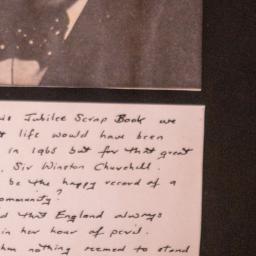 Jubilee Scrap Book we
life would have been
in 1965 but for that great
, Sir Winston Churchill.
be the happy record of a
ommunity?
d that England always
in her hour of peril.
nothing seemed to stand